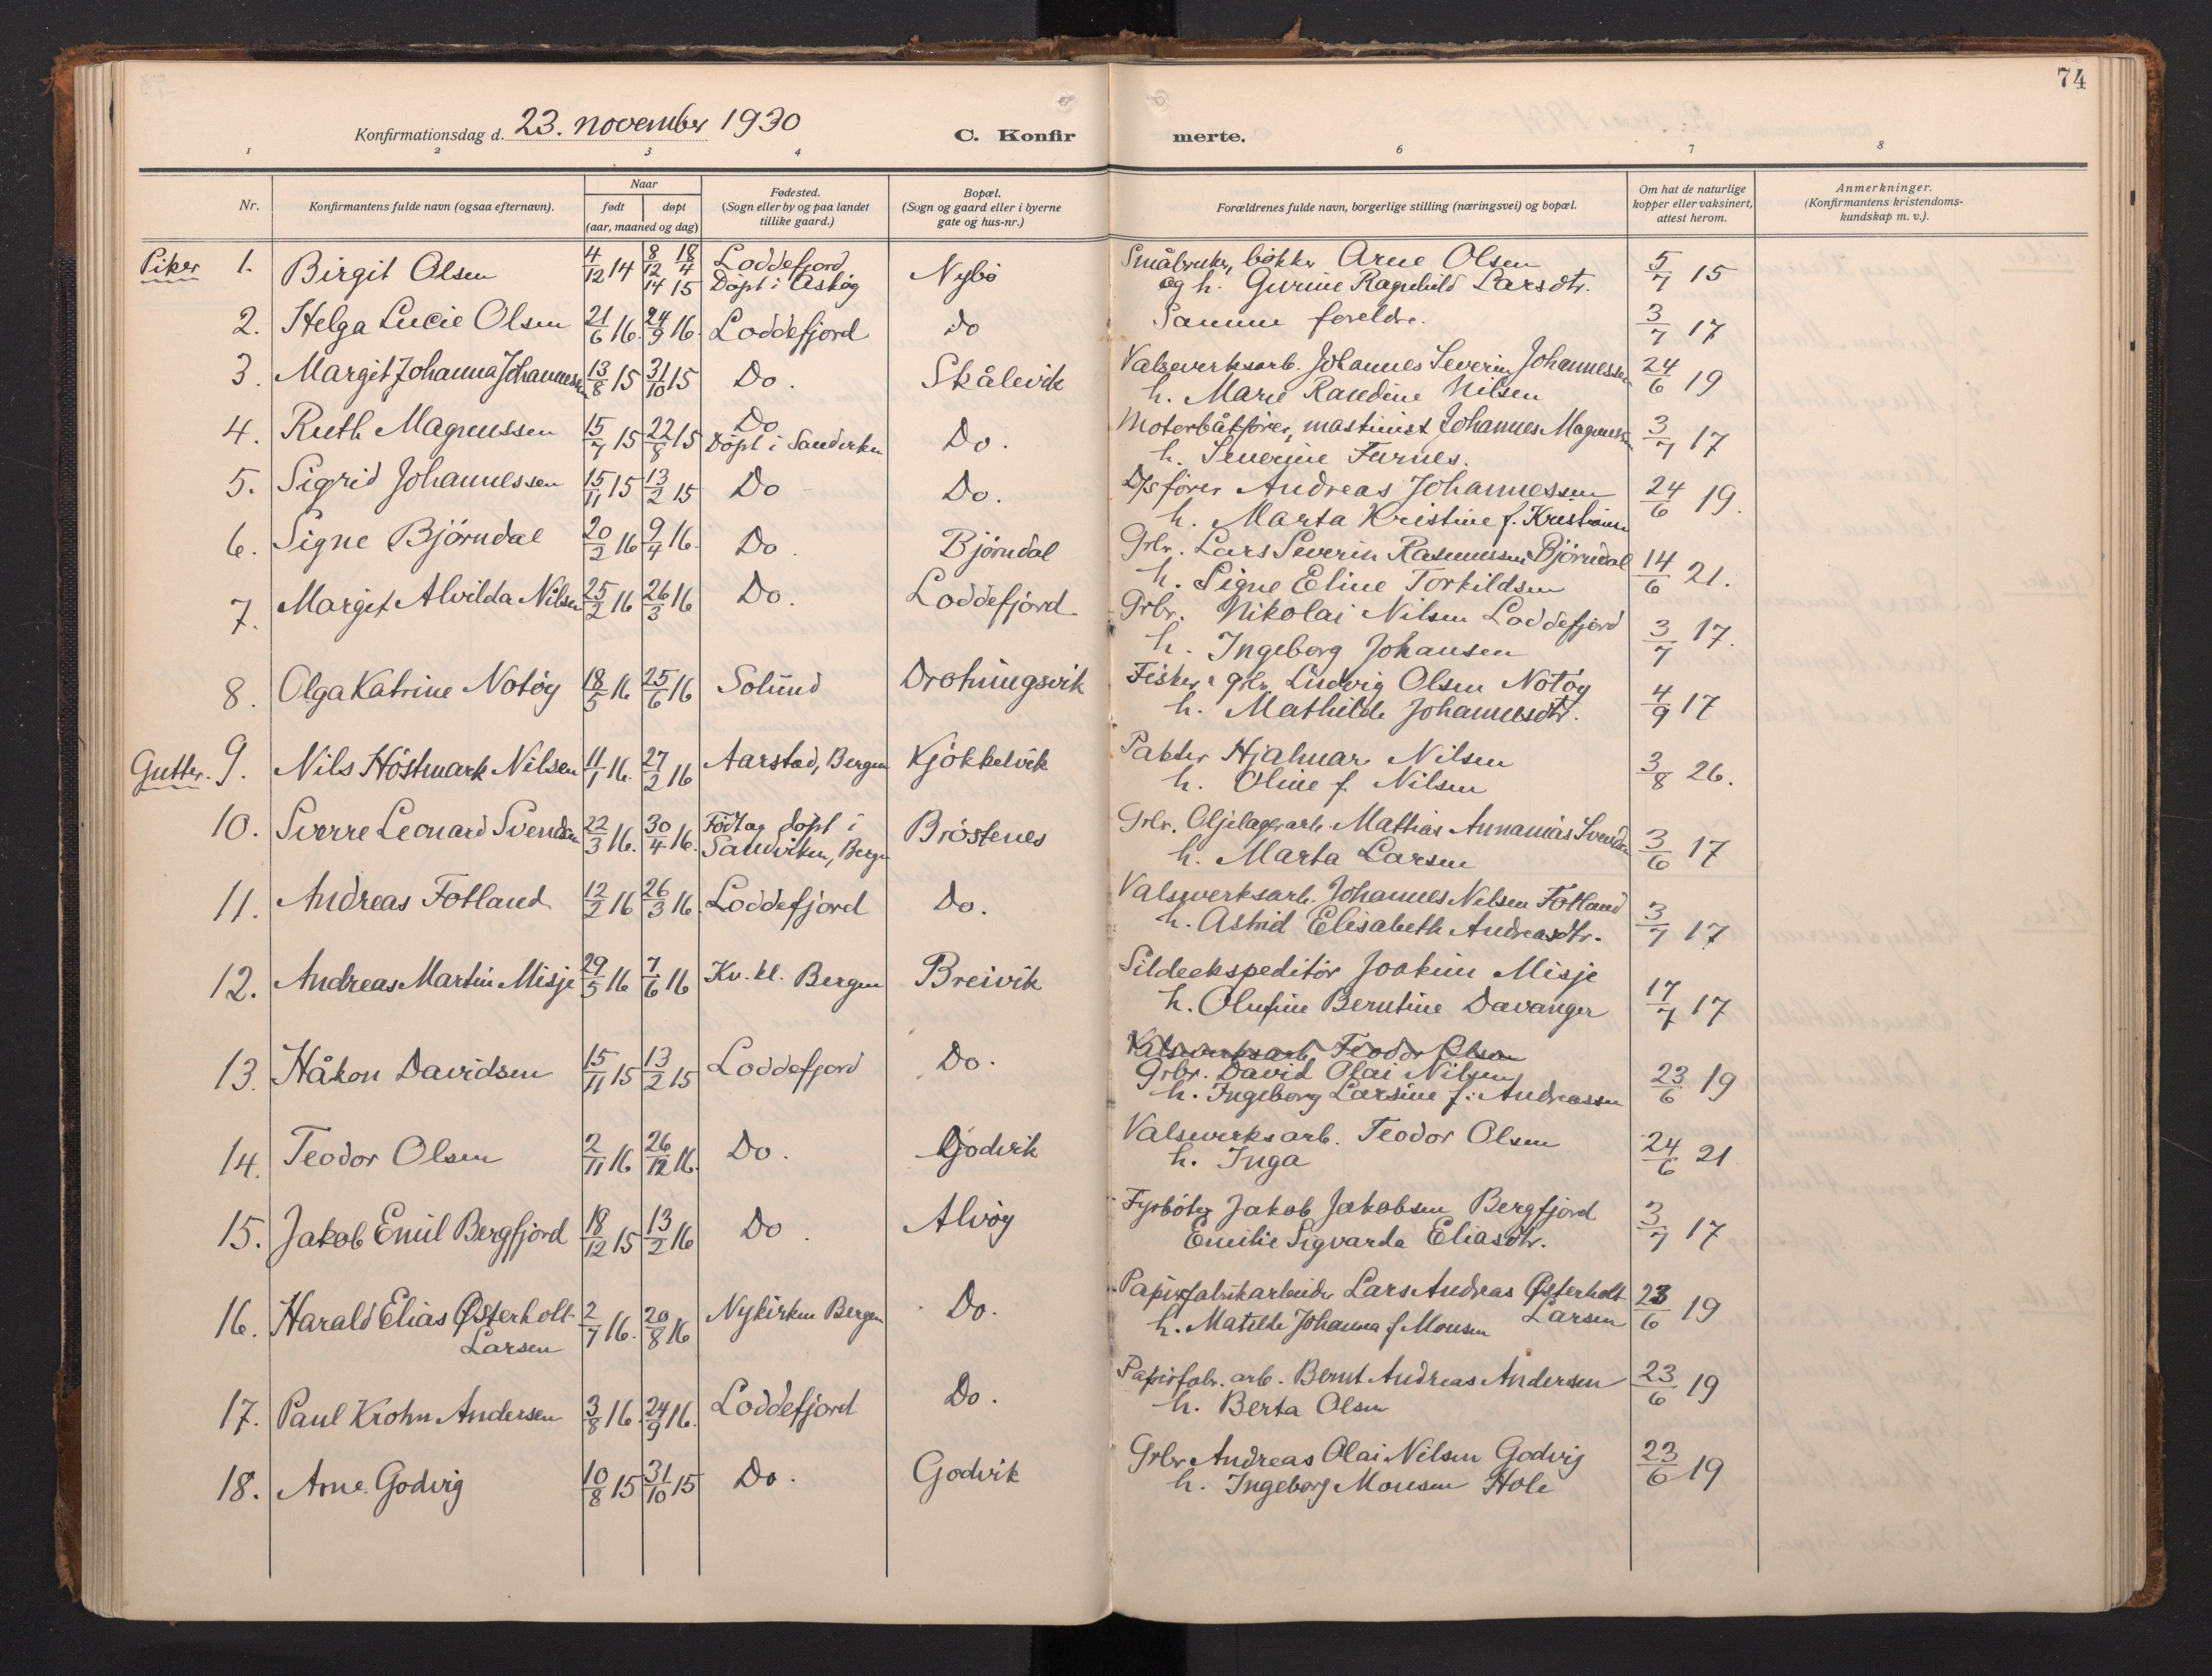 74
Konfirmationsdag d. 23. november 1930
C. Konfirmerte.
1 2 3 4 6 7 8
Nr.
Konfirmantens fulde navn (ogsaa efternavn).
Naar
født døpt
(aar, maaned og dag)
Fødested.
(Sogn eller by og paa landet
tillike gaard.)
Bopæl.
(Sogn og gaard eller i byerne
gate og hus-nr.)
Forældrenes fulde navn, borgerlige stilling (næringsvei) og bopæl.
Om hat de naturlige
kopper eller vaksinert,
attest herom.
Anmerkninger.
(Konfirmantens kristendoms-
kundskap m. v.).
Piker 1. Birgit Olsen 4/12 14 8/12 14 18/4 15 Loddefjord Døpt i Askøy Nybø Småbruker, bøkker Arne Olsen 5/7 15
og h. Gurine Ragnhild Larsdtr.
2. Helga Lucie Olsen 21/6 16. 24/9 16. Loddefjord Do Samme foreldre. 3/7 17
3. Margit Johanna Johannessen 13/8 15 31/10 15 Do. Skålevik Valseverksarb. Johannes Severin Johannessen 24/6 19
h. Marie Randine Nilsen
4. Ruth Magnussen 15/7 15 22/8 15 Do Døpt i Sandviken Do. Motorbåtfører, maskinist Johannes Magnussen 3/7 17
h. Severine Furnes.
5. Sigrid Johannessen 15/11 15 13/2 15 Do Do. D/s fører Andreas Johannessen 24/6 19.
h. Marta Kristine f. Kristiansen
6. Signe Bjørndal 20/2 16 9/4 16. Do. Bjørndal Grbr. Lars Severin Rasmussen Bjørndal 14/6 21.
h. Signe Eline Torkildsen
7. Margit Alvilda Nilsen 25/2 16 26/3 16 Do. Loddefjord Grbr. Nikolai Nilsen Loddefjord 3/7 17.
h. Ingeborg Johansen
8. Olga Katrine Notøy 18/5 16 25/6 16 Solund Drotningsvik Fisker, grbr. Ludvig Olsen Notøy 4/9 17
h. Mathilde Johannesdtr.
Gutter. 9. Nils Höstmark Nilsen 11/1 16. 27/2 16 Aarstad, Bergen Kjøkkelvik Pakker Hjalmar Nilsen 3/8 26.
h. Oline f. Nilsen
10. Sverre Leonard Svendsen 22/3 16. 30/4 16. Født og døpt i Sandviken, Bergen Brøstenes Grbr. Oljelagerarb. Mathias Annanias Svendsen 3/6 17
h. Marta Larsen
11. Andreas Fotland 12/2 16 26/3 16. Loddefjord Do. Valseverksarb. Johannes Nilsen Fotland 3/7 17
h. Astrid Elisabeth Andreasdtr.
12. Andreas Martin Misje 29/5 16 7/6 16 Kv. kl. Bergen Breivik Sildeekspeditör Joakim Misje 17/7 17
h. Olufine Berntine Davanger
Valseverksarb. Teodor Olsen
13. Håkon Davidsen 15/11 15 13/2 15 Loddefjord Do. Grbr. David Olai Nilsen 23/6 19
h. Ingeborg Larsine f. Andreassen
14. Teodor Olsen 2/11 16 26/12 16. Do. Godvik Valseverksarb. Teodor Olsen 24/6 21
h. Inga
15. Jakob Emil Bergfjord 18/12 15 13/2 16 Do. Alvøy Fyrböter Jakob Jakobsen Bergfjord 3/7 17
Emilie Sigvarda Eliasdtr.
16. Harald Elias Østerholt- Larsen 2/7 16. 20/8 16 Nykirken Bergen Do. Papirfabrikarbeider Lars Andreas Østerholt Larsen 23/6 19
h. Matilde Johanna f. Monsen
17. Paul Krohn Andersen 3/8 16. 24/9 16. Loddefjord Do. Papirfabr. arb. Bernt Andreas Andersen 23/6 19
h. Berta Olsen
18. Arne Godvig 10/8 15 31/10 15 Do. Godvik Grbr Andreas Olai Nilsen Godvig 23/6 19
h. Ingeborg Monsen Hole